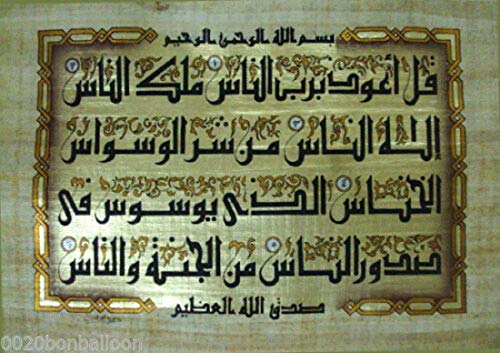 بسم الله الرحمن الرحيم
قل أعوذ برب الناس ملك الناس
إله الناس من شر الوسواس
الخناس الذي يوسوس في
صدور الناس من الجنة والناس
صدق الله العظيم
0020bonballoon